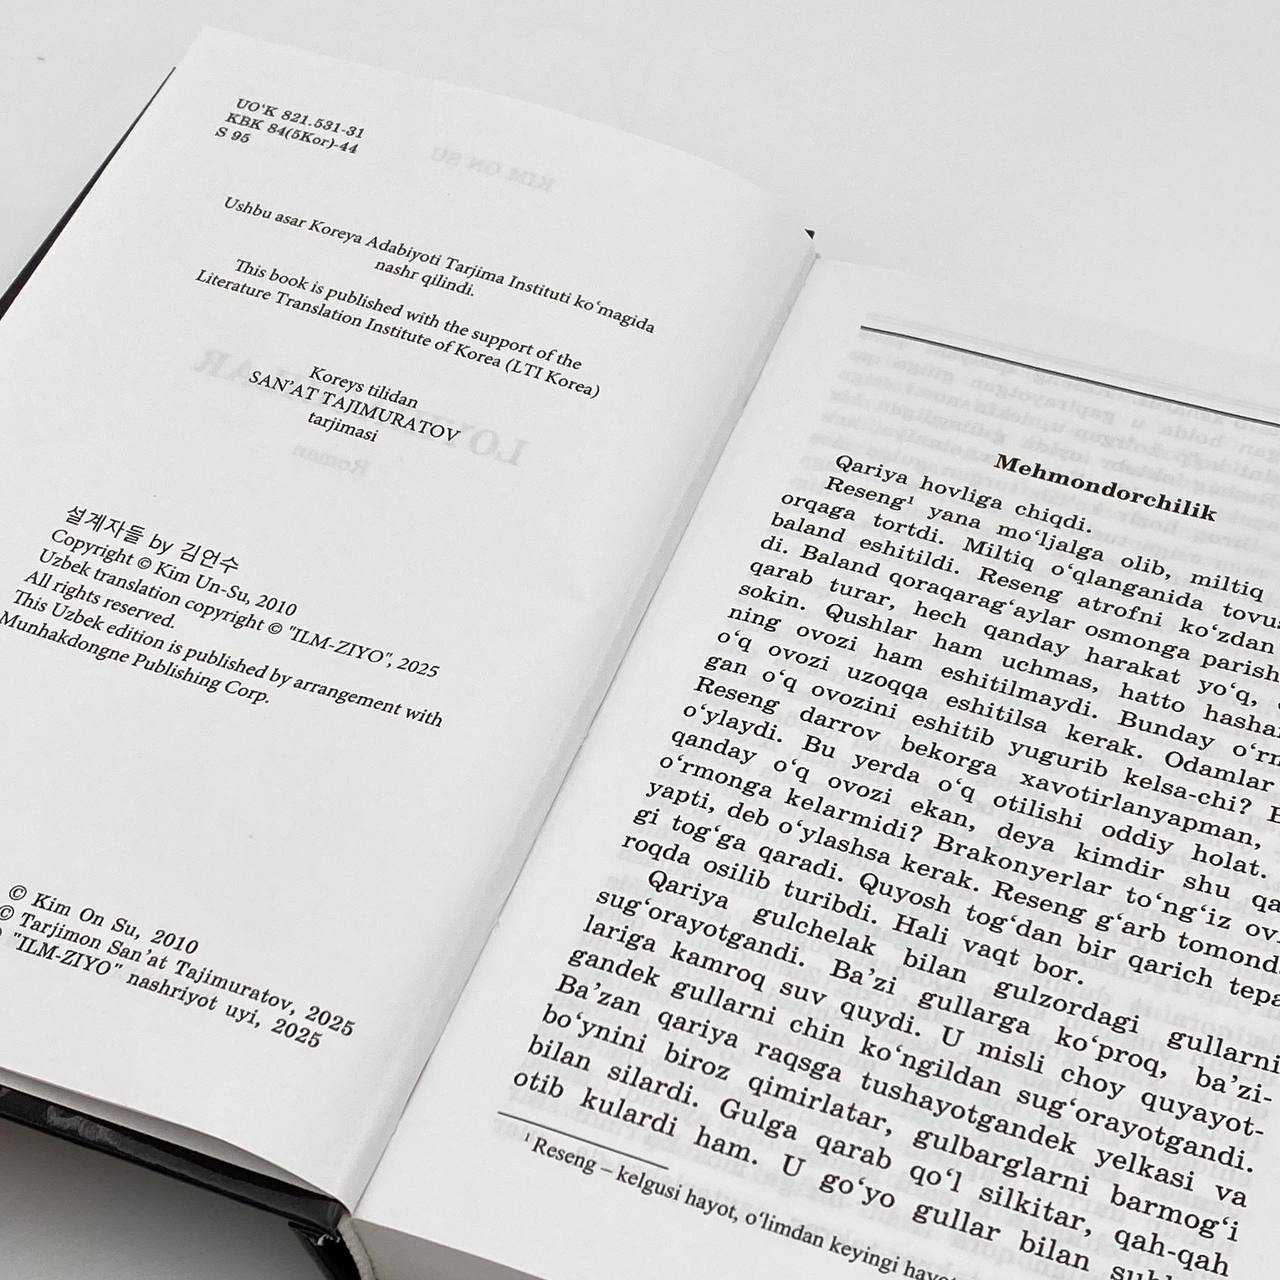 UO‘K 821.531-31
KBK 84(5Kor)-44
S 95
Ushbu asar Koreya Adabiyoti Tarjima Instituti ko‘magida
nashr qilindi.
This book is published with the support of the
Literature Translation Institute of Korea (LTI Korea)
Koreys tilidan
SAN’AT TAJIMURATOV
tarjimasi
설계자들 by 김언수
Copyright © Kim Un-Su, 2010
Uzbek translation copyright © "ILM-ZIYO", 2025
All rights reserved.
This Uzbek edition is published by arrangement with
Munhakdongne Publishing Corp.
© Kim On Su, 2010
© Tarjimon San’at Tajimuratov, 2025
"ILM-ZIYO" nashriyot uyi, 2025
Mehmondorchilik
Qariya hovliga chiqdi.
Reseng¹ yana mo‘ljalga olib, miltiq
orqaga tortdi. Miltiq o‘qlanganida
baland eshitildi. Reseng atrofni ko‘zdan
di. Baland qoraqarag‘aylar osmonga
qarab turar, hech qanday harakat yo‘q,
sokin. Qushlar ham uchmas, hatto
ning ovozi ham eshitilmaydi. Bunday
o‘q ovozi uzoqqa eshitilsa kerak. Odamlar
gan o‘q ovozini eshitib yugurib kelsa-chi?
Reseng darrov bekorga xavotirlanyapman,
o‘ylaydi. Bu yerda o‘q otilishi oddiy holat.
qanday o‘q ovozi ekan, deya kimdir shu
o‘rmonga kelarmidi? Brakonyerlar to‘ng‘iz
yapti, deb o‘ylashsa kerak. Reseng g‘arb
gi tog‘ga qaradi. Quyosh tog‘dan bir qarich
roqda osilib turibdi. Hali vaqt bor.
Qariya gulchelak bilan gulzordagi gullarni
sug‘orayotgandi. Ba’zi gullarga ko‘proq, ba’zi-
lariga kamroq suv quydi. U misli choy quyayot-
gandek gullarni chin ko‘ngildan sug‘orayotgandi.
Ba’zan qariya raqsga tushayotgandek yelkasi va
bo‘ynini biroz qimirlatar, gulbarglarni barmog‘i
bilan silardi. Gulga qarab qo‘l silkitar, qah-qah
otib kulardi ham. U go‘yo gullar bilan
¹ Reseng – kelgusi hayot, o‘limdan keyingi